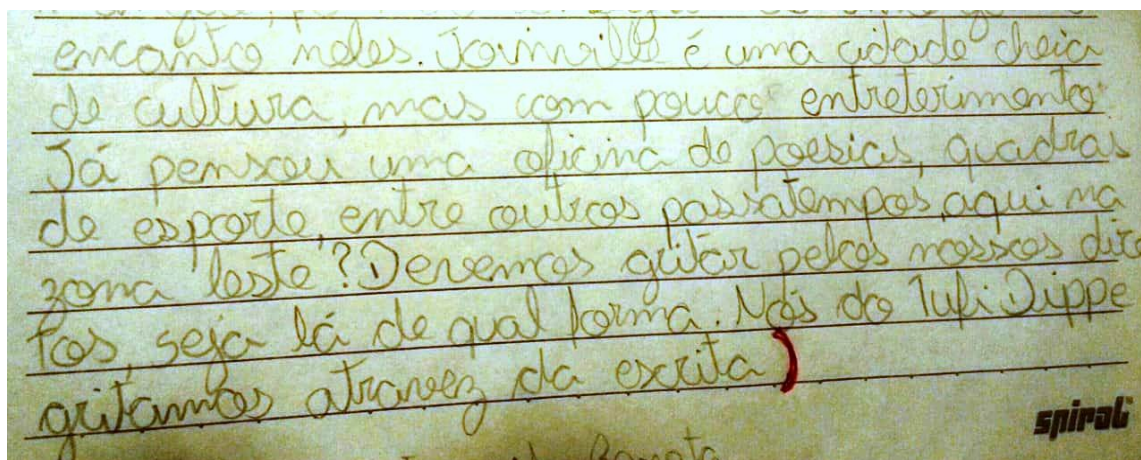 encanto neles. Joinville é uma cidade cheia
de cultura, mas com pouco entreterimento
Já pensou uma oficina de poesias, quadras
de esporte, entre outros passatempos, aqui na
zona leste? Devemos gritar pelos nossos dire
tos, seja lá de qual forma. Nós do Tufi Dippe
gritamos atravez da escrita
spiral
Renata